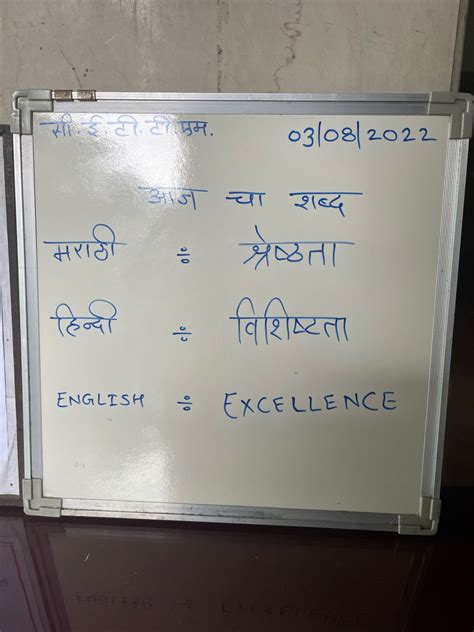 सी.ई.टी.टी.एम. 03/08/2022
आज चा शब्द
मराठी ÷ श्रेष्ठता
हिन्दी ÷ विशिष्टता
ENGLISH ÷ EXCELLENCE